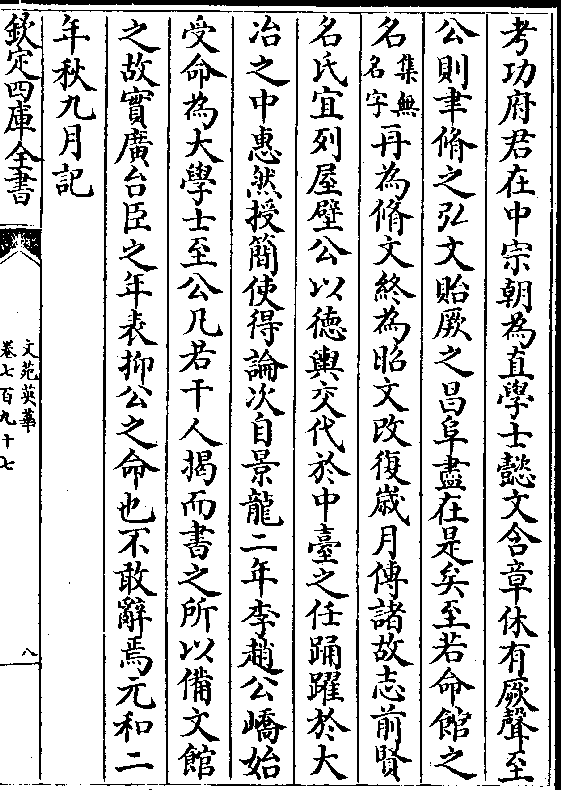 考功府君在中宗朝為直學士懿文含章休有厥聲至
公則聿脩之弘文貽厥之昌阜盡在是矣至若命館之
名集無名字再為脩文終為昭文改復歳月傳諸故志前賢
名氏宜列屋壁公以徳輿交代於中臺之任踊躍於大
冶之中惠然授簡使得論次自景龍二年李趙公嶠始
受命為大學士至公凡若干人揭而書之所以備文館
之故實廣台臣之年表抑公之命也不敢辭焉元和二
年秋九月記
欽定四庫全書
文苑英華
卷七百九十七
八